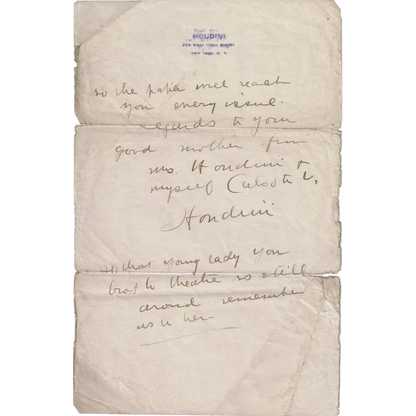 HOUDINI
NEW YORK, N. Y.
so the paper will reach
you every issue.
regards to your
good mother from
Mrs. Houdini &
myself
Houdini
If that young lady you
to theatre is still
around remember
us to her